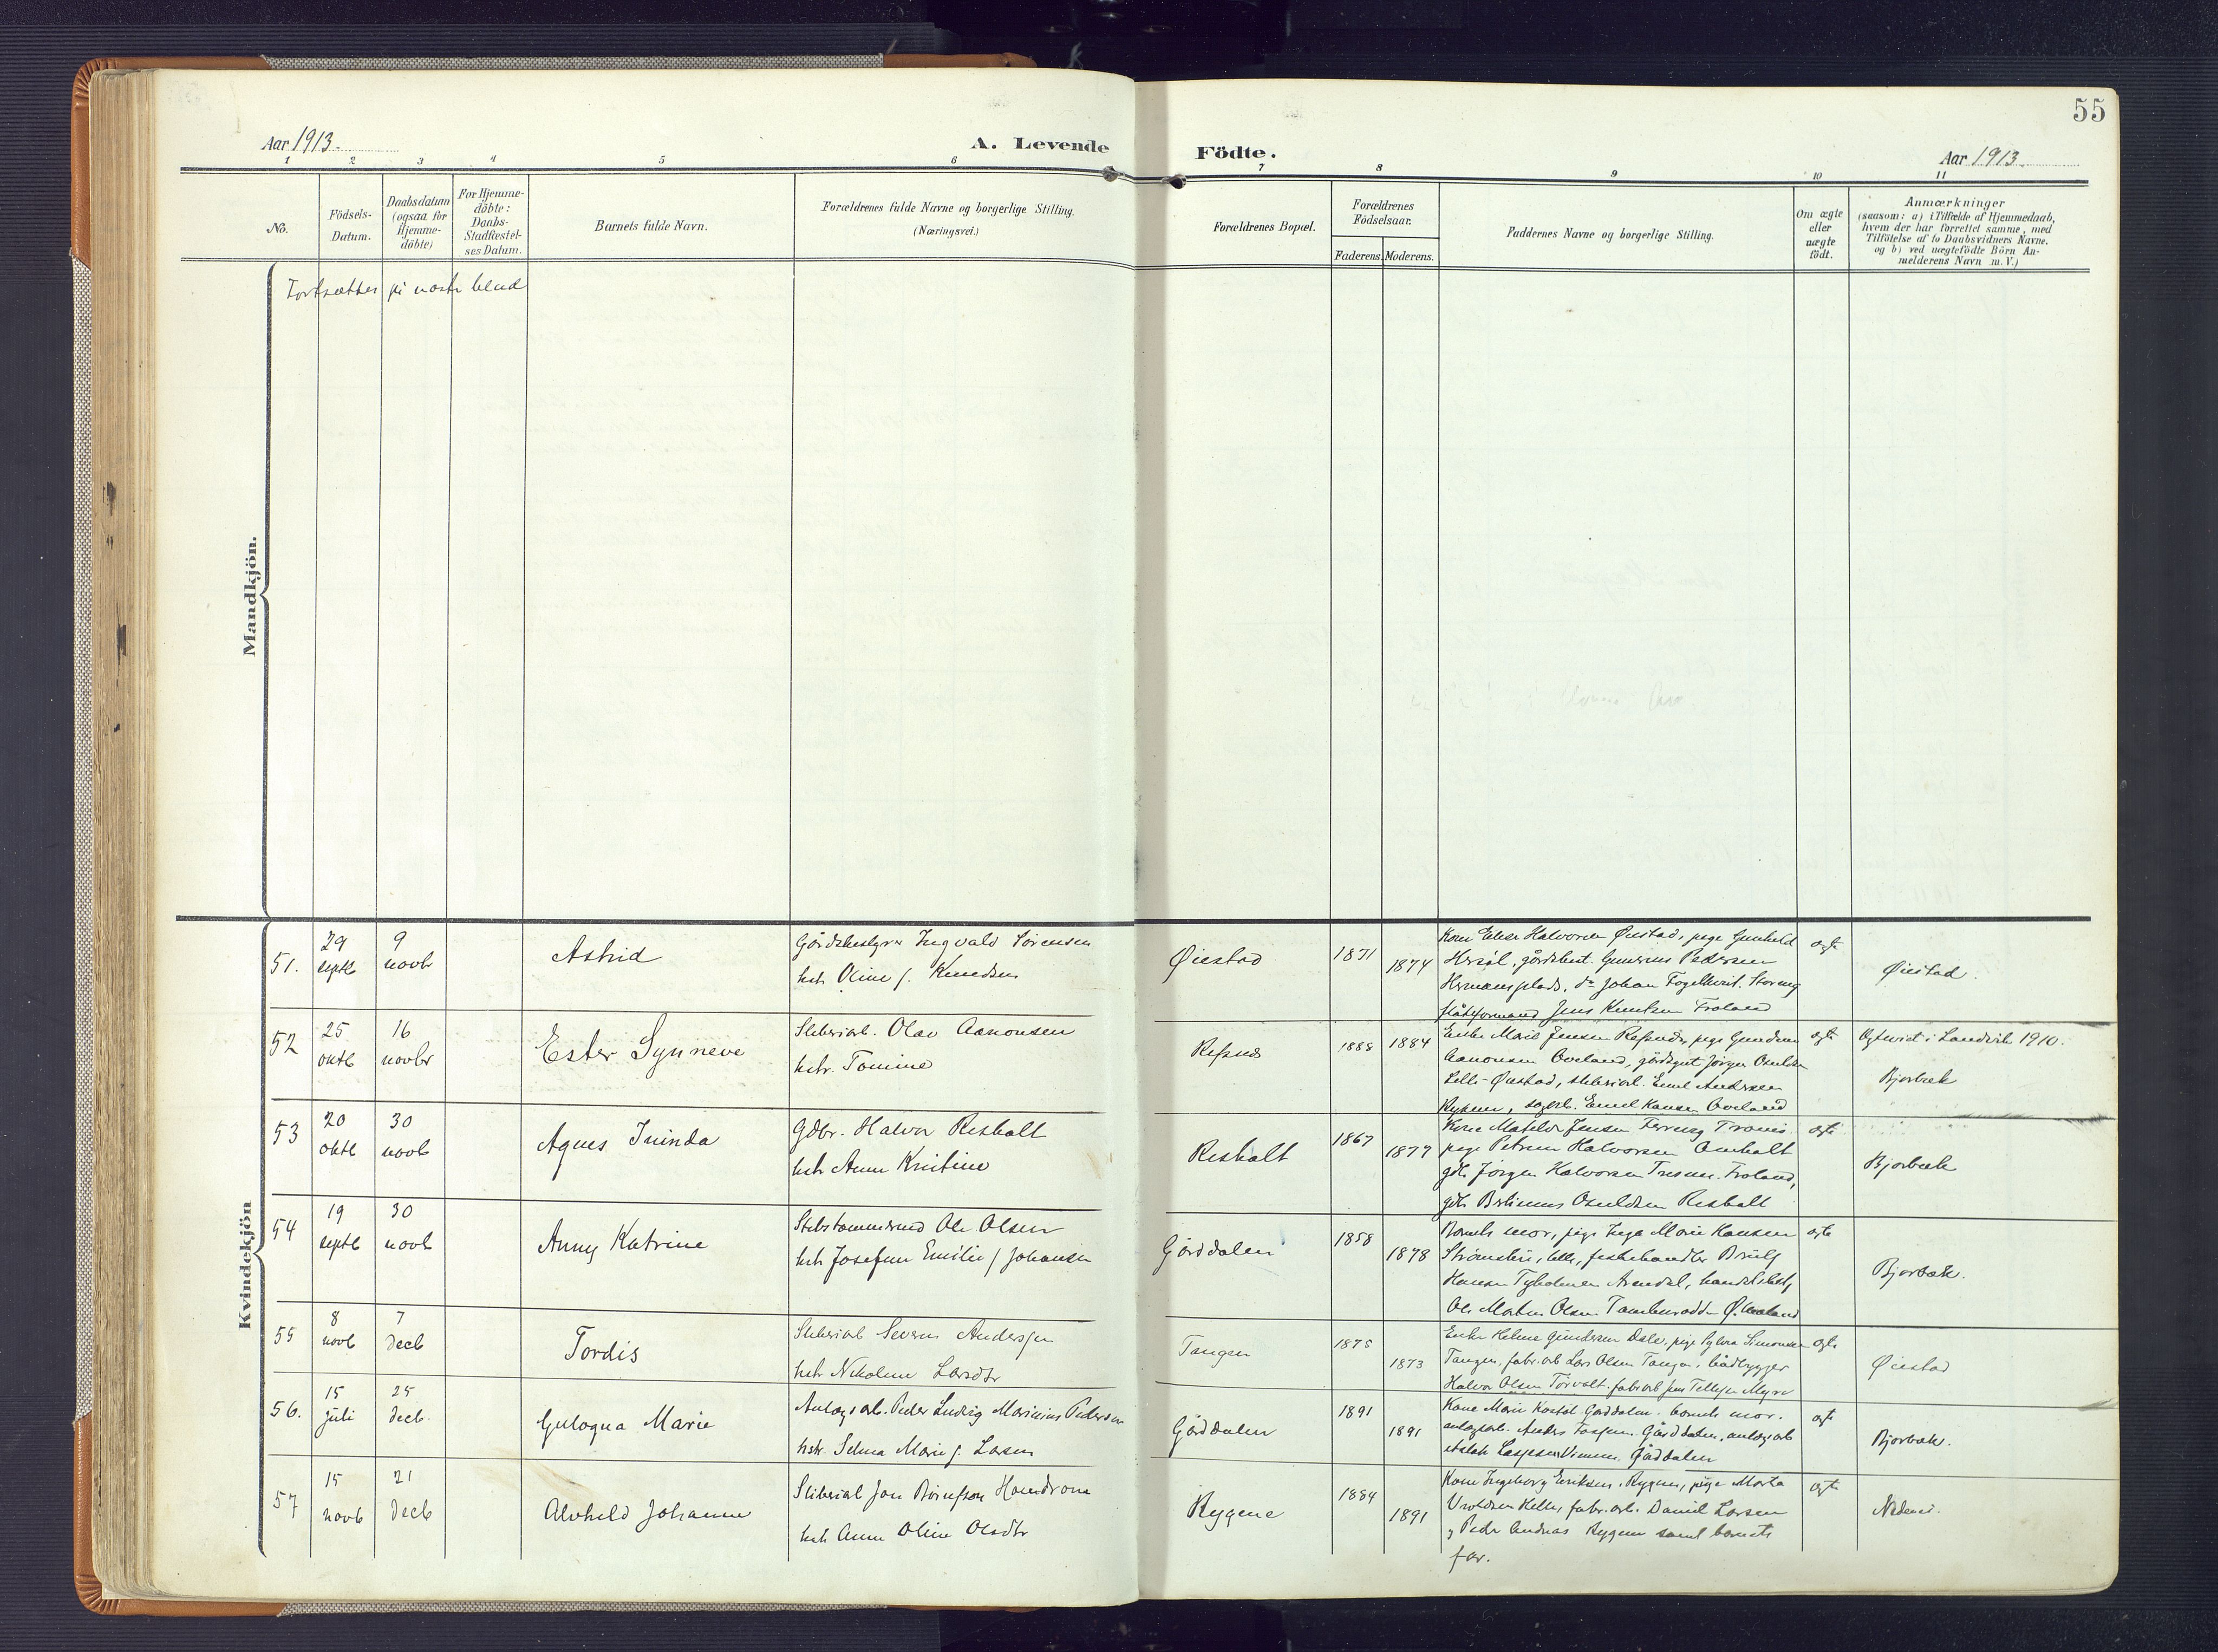 55
Aar 1913.
A. Levende
Födte.
Aar 1913
1 2 3 4 5 6 7 8 9 10 11
No.
Födsels-
Datum.
Daabsdatum
(ogsaa for
Hjemme-
döbte)
For Hjemme-
döbte:
Daabs-
Stadfæstel-
ses Datum.
Barnets fulde Navn.
Forældrenes fulde Navne og borgerlige Stilling.
(Næringsvei.)
Forældrenes Bopæl.
Forældrenes
Födselsaar.
Faderens. Moderens.
Faddernes Navne og borgerlige Stilling.
Om ægte
eller
uægte
födt.
Anmærkninger
(saasom: a) i Tilfælde af Hjemmedaab,
hvem der har forrettet samme, med
Tilföielse af to Daabsvidners Navne,
og b) ved uægtefödte Börn An-
melderens Navn m. V.)
Mandkjön.
Fortsættes på næste blad
Kvindekjön
51.
29
septb
9
novbr
Astrid
Gårdsbestyrer Ingvald Sörensen
hstr Oline f. Knudsen
Øiestad
1871
1874
Kone Elise Halvorsen Øiestad, pige Gunhild
Hersöl, gårdbest. Gunerius Pedersen
Hermansplads, do Johan Fogelkvist
flåteformand Jens Knutsen Froland
ægte
Øiestad
52
25
oktb
16
novbr
Ester Synneve
Sliberiarb. Olav Aanonsen
hstr. Tomine
Refsnes
1888
1884
Enke Maid Jensen Refsnes, pige Gundrun
Aanonsen Oveland, gårdgut Jörgen Osuldsen
Lille-Øiestad, sliberiarb. Emil Andersen
Rykene, sagarb. Emil Hansen Oveland
ægte
Ægteviet i Landvik 1910.
Bjorbæk
53
20
oktb
30
novb
Agnes Juinda
Gdbr. Halvor Resholt
hstr Anne Kristine
Resholt
1867
1877
Kone Matilde Jensen
pige Petrine Halvorsen Omholt
gdb Jörgen Halvorsen Froland,
gdb Osuldsen Resholt
ægte
Bjorbæk
54
19
septb
30
novb
Anny Katrine
Ole Olsen
hstr Josefine Emilie f Johansen
Gårddalen
1858
1878
Barnets mor, pige Inga Marie Hansen
fiskehandler
Hansen Tyholmen Arendal,
Ole Martin Olsen
ægte
Bjorbæk.
55
8
novb
7
decb
Tordis
Sliberiarb Severin Anderssen
hstr Nikoline Larsdtr
Tangen
1875
1873
Enke Helene Gundersen Dale, pige Sylvia Simonsen
Tangen, fabr.arb Lars Olsen Tangen, bådbygger
Halvor Olsen fabr.arb Jens Tellefsen Myra
ægte
Øiestad
56.
15
juli
25
decb.
Gulogna Marie
Anlægsarb. Peder Ludvig Marinius Pedersen
hstr. Selma Marie f. Larsen
Gårddalen
1891
1891
Kone Marie Gårddalen. barnets mor.
anlægsarb. Anders Gårddalen, anlægsarb
Gårddalen
ægte
Bjorbæk.
57
15
novb
21
decb
Alvhild Johanne
Sliberiarb Jon
hstr Anne Oline Olsdtr
Rygene
1884
1891
Kone Ingeborg Eriksen, Rygene, pige Marta
fabr.arb. Daniel Larsen
og Peder Andreas Rygene samt barnets
far.
ægte
Nedenes.